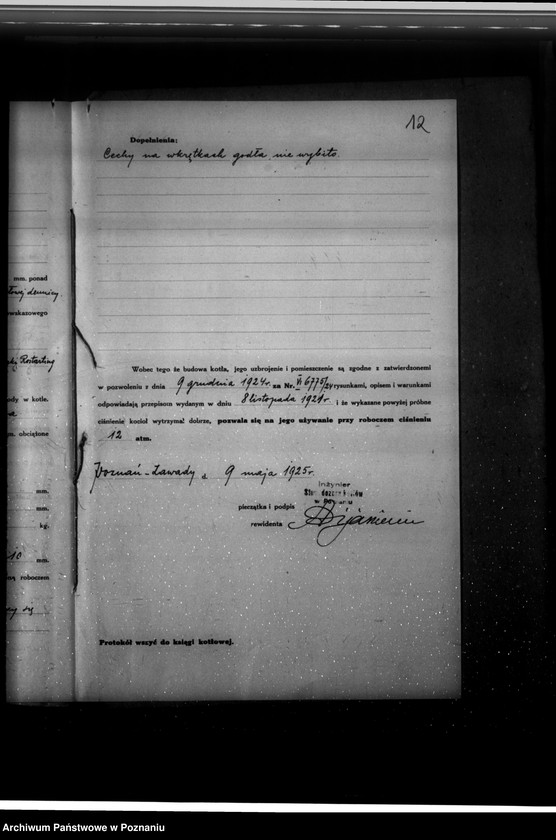 12
Dopełnienia:
Cechy na wkrętkach godła nie wybito.
mm. ponad
wskazowego
ody w kotle.
m. obciążone
mm.
mm.
kg.
10 mm.
roboczem
Wobec tego że budowa kotła, jego uzbrojenie i pomieszczenie są zgodne z zatwierdzonemi
w pozwoleniu z dnia 9 grudnia 1924r. za Nr. VI 6775/24 rysunkami, opisem i warunkami
odpowiadają przepisom wydanym w dniu 8 listopada 1921r. i że wykazane powyżej próbne
ciśnienie kocioł wytrzymał dobrze, pozwala się na jego używanie przy roboczem ciśnieniu
12 atm.
Poznań-Zawady d. 9 maja 1925r.
Inżynier
w Poznaniu
pieczątka i podpis
rewidenta
Protokół wszyć do księgi kotłowej.
Archiwum Państwowe w Poznaniu